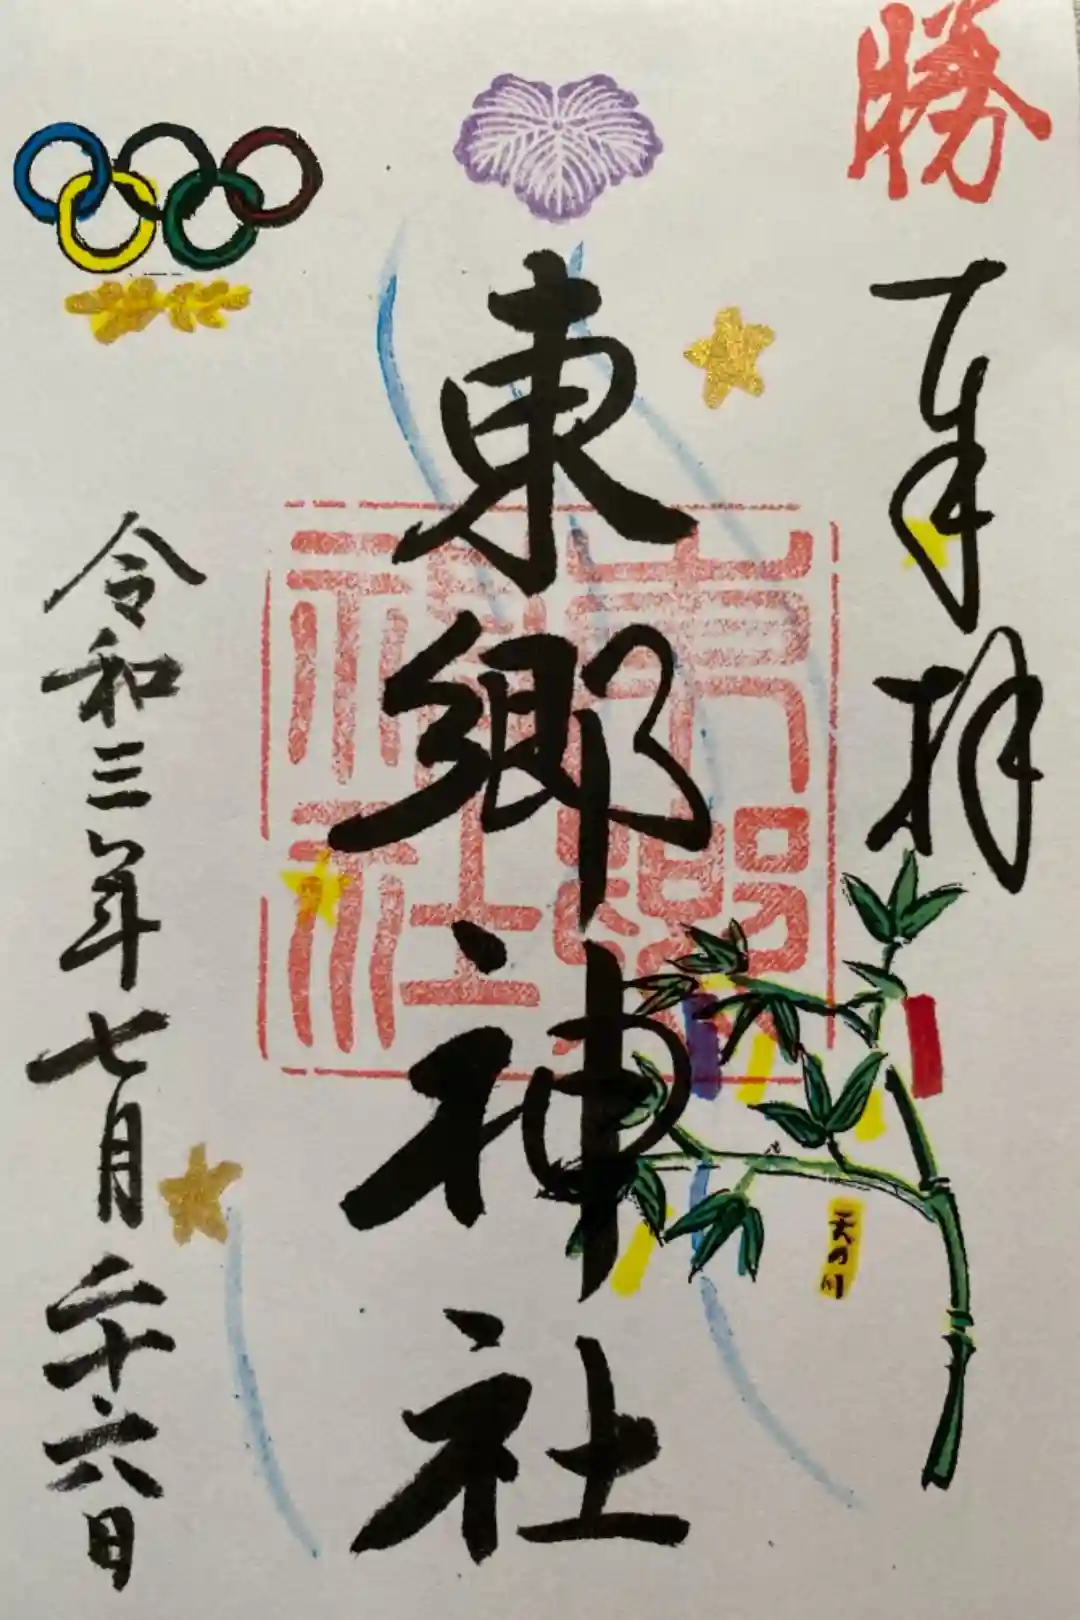 勝
奉拝
東郷神社
東郷神社
天の川
令和三年七月二十六日